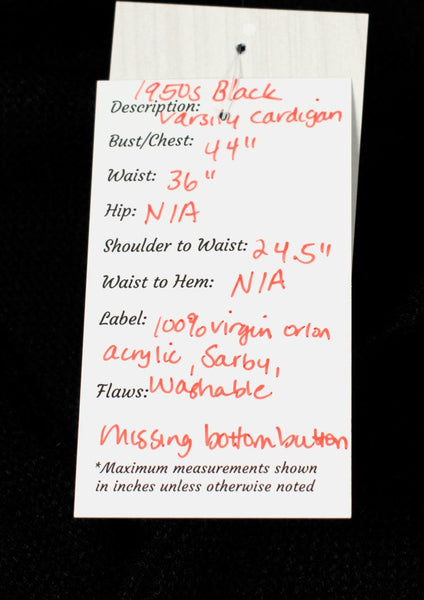 1950s Black
Description: Varsity cardigan
Bust/Chest: 44"
Waist: 36"
Hip: N/A
Shoulder to Waist: 24.5"
Waist to Hem: N/A
Label: 100% virgin orlon
acrylic, Sarby,
Flaws: Washable
Missing bottom button
*Maximum measurements shown
in inches unless otherwise noted